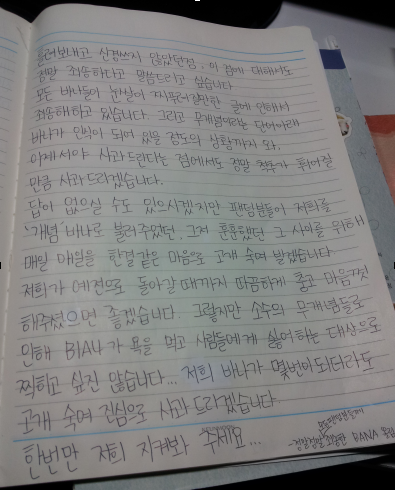 흘려보내고 신경쓰지 않았던점, 이 점에 대해서도
정말 죄송하다고 말씀드리고 싶습니다
모든 바나들이 눈살이 찌푸려질만한 글에 인해서
죄송해하고 있습니다. 그리고 무개념이라는 단어아래
바나가 인식이 되어 있을 정도의 상황까지 와,
이제서야 사과드린다는 점에서도 정말 척추가 튀어질
만큼 사과드리겠습니다.
답이 없으실 수도 있으시겠지만 팬덤분들이 저희를
'개념'바나로 불러주었던, 그저 훈훈했던 그 사이를 위해
매일 매일을 한결같은 마음으로 고개 숙여 빌겠습니다
저희가 예전으로 돌아갈 때까지 따끔하게 혼고 마음껏
해주셨으면 좋겠습니다. 그렇지만 소수의 무개념들로
인해 B1A4가 욕을 먹고 사람들에게 싫어하는 대상으로
찍히고 싶진 않습니다... 저희 바나가 몇번이 되더라도
고개 숙여 진심으로 사과드리겠습니다
한번만 저희 지켜봐 주세요...
-정말정말 죄송한 BANA 올림